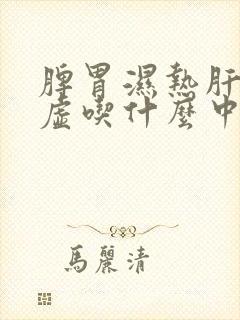 脾胃濕熱肝
虛喫什麼中
馬麗清